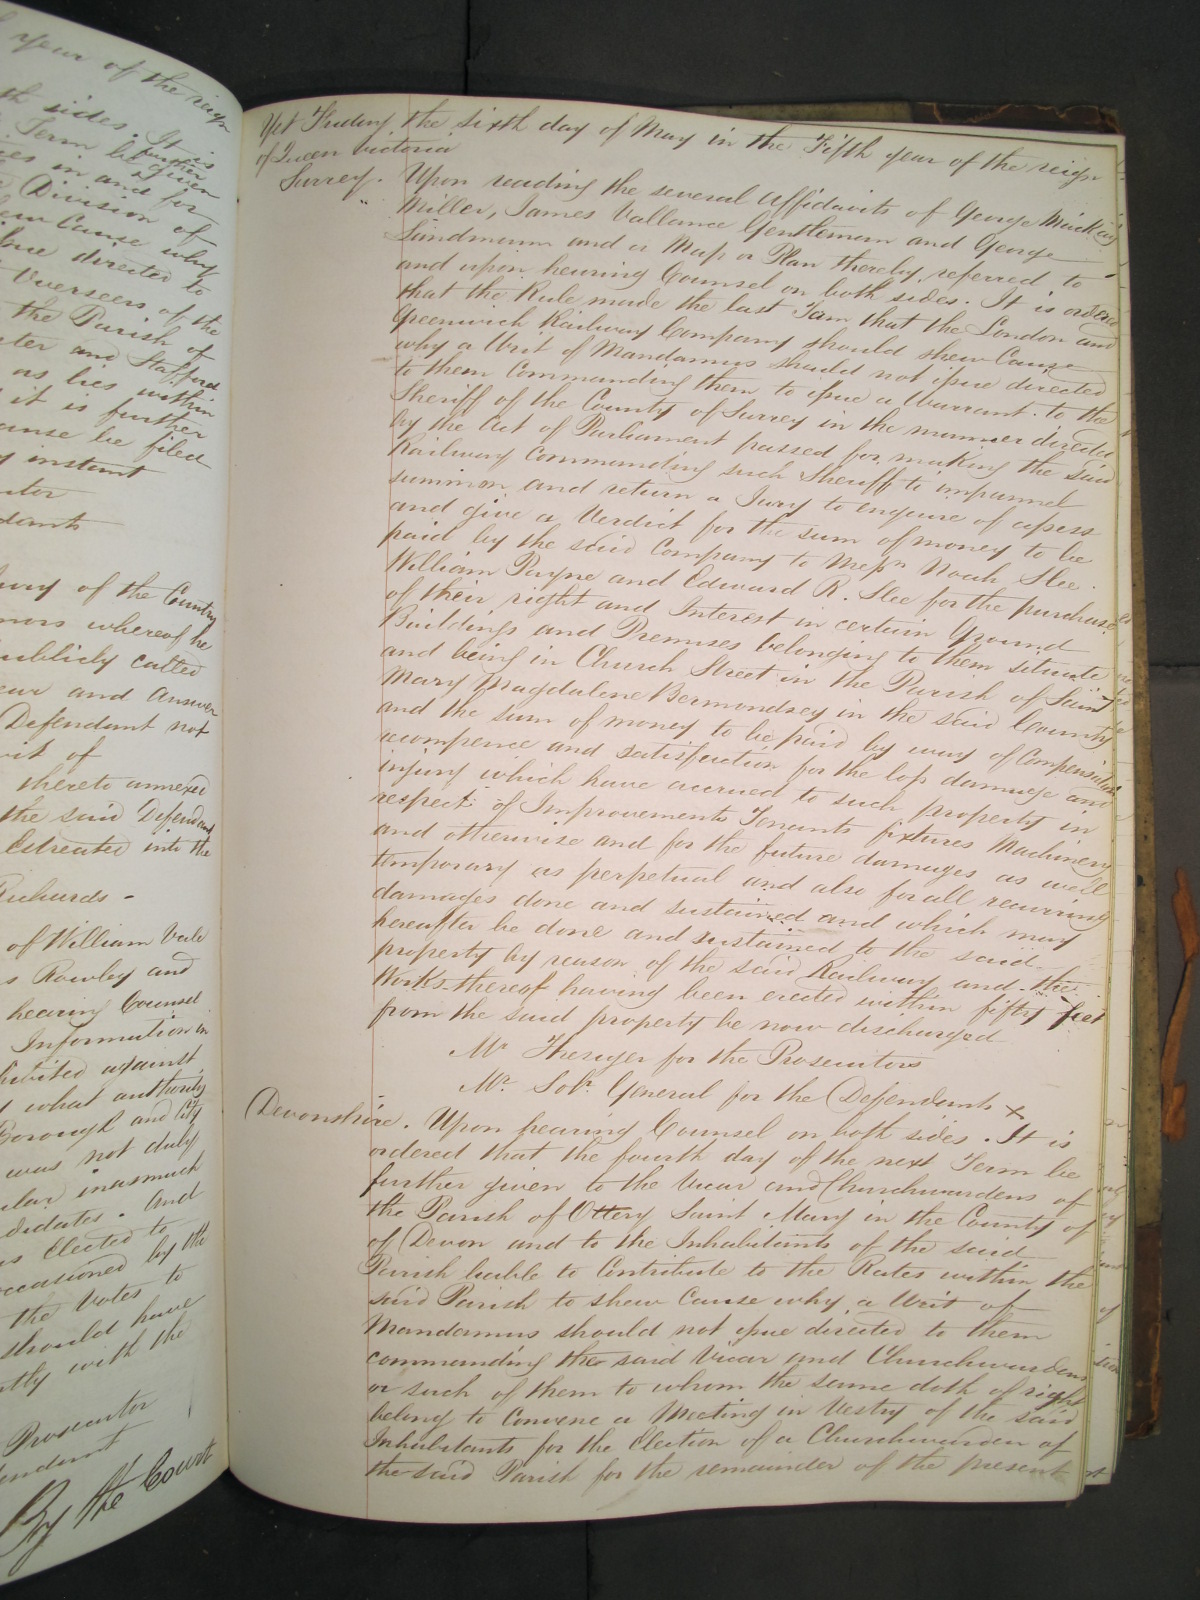 year of the reign
sides. It is
further
Term be given
in and for
Division of
Cause why
issue directed to
Overseers of the
the Parish of
and Stafford
as lies within
it is further
be filed
instant
of the County
whereof he
publicly called
and answer
Defendant not
of
thereto annexed
the said Defendant
Estreated into the
Richards -
of William Vale
Rowley and
hearing Counsel
Information in
exhibited against
what authority
Borough and City
was not duly
inasmuch
And
Elected to
occasioned by the
the Votes to
should have
with the
Prosecutor
By the Court
Yet Friday the sixth day of May in the Fifth year of the reign
of Queen Victoria
Surrey. Upon reading the several Affidavits of George Mackay
Miller, James Vallance Gentleman and George
Landmann and a Map or Plan thereby referred to
and upon hearing Counsel on both sides. It is ordered
that the Rule made the last Term that the London and
Greenwich Railway Company should shew Cause
why a Writ of Mandamus should not issue directed
to them Commanding them to issue a Warrant to the
Sheriff of the County of Surrey in the manner directed
by the Act of Parliament passed for making the said
Railway Commanding such Sheriff to impannel
summon and return a Jury to enquire of assess
and give a Verdict for the sum of money to be
paid by the said Company to Messrs Noah Slee
William Payne and Edward R. Slee for the purchase
of their right and Interest in certain Ground
Buildings and Premises belonging to them situate
and being in Church Street in the Parish of Saint
Mary Magdalene Bermondsey in the said County
and the sum of money to be paid by way of Compensation
recompence and satisfaction for the loss damage and
injury which have accrued to such property in
respect of Improvements Tenants fixtures Machinery
and otherwise and for the future damages as well
temporary as perpetual and also for all recurring
damages done and sustained and which may
hereafter be done and sustained to the said
property by reason of the said Railway and the
Works thereof having been erected within fifty feet
from the said property be now discharged
Mr. Thesiger for the Prosecutors
Mr. Solr. General for the Defendants x
Devonshire. Upon hearing Counsel on both sides. It is
ordered that the fourth day of the next Term be
further given to the Vicar and Churchwardens of
the Parish of Ottery Saint Mary in the County of
of Devon and to the Inhabitants of the said
Parish liable to Contribute to the Rates within the
said Parish to shew Cause why a Writ of
Mandamus should not issue directed to them
commanding the said Vicar and Churchwardens
or such of them to whom the same doth of right
belong to Convene a Meeting in Vestry of the said
Inhabitants for the Election of a Churchwarden of
the said Parish for the remainder of the present